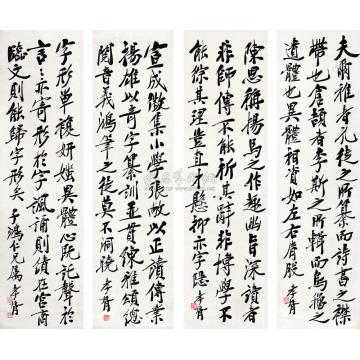 夫爾雅者孔徒之所纂而詩書之襟
帶也倉頡者李斯之所輯而鳥籀之
遺體也異體相資如左右肩股
李胥
陳思稱揚馬之作趣幽旨深讀者
非師傳不能析其辭非博學不
能綜其理豈直才懸抑亦字隱
李胥
宣成徵集小學張敞以正讀傳業
揚雄以奇字纂訓並貫練雅頌總
閱音義鴻筆之徒莫不洞曉
李胥
字形單複妍媸異體心既託聲於
言言亦寄形於字諷誦則績在宮商
臨文則能歸字形矣
子鴻仁兄屬
李胥